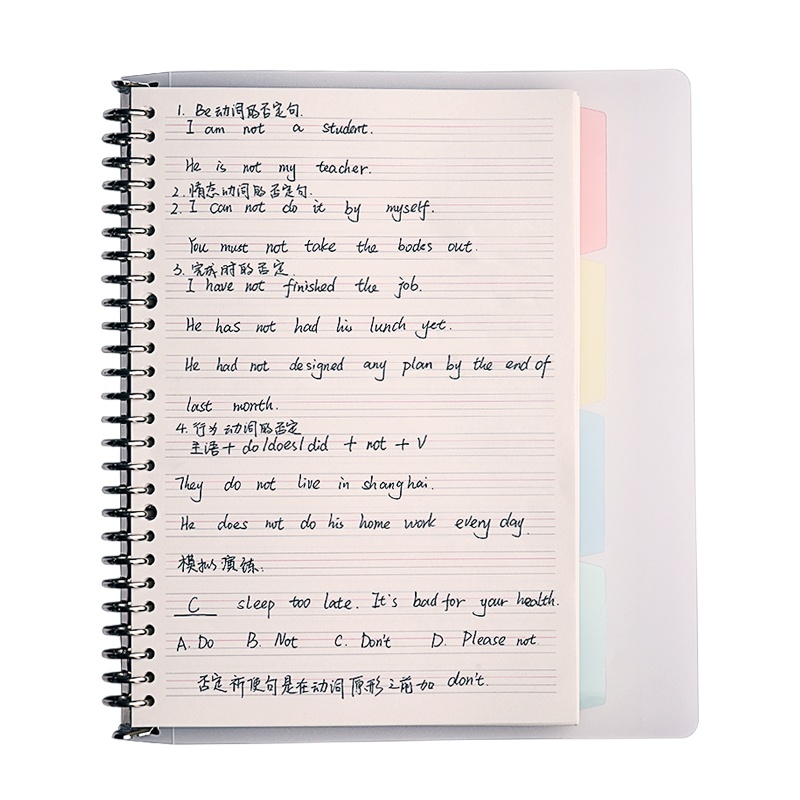 1. Be动词的否定句.
I am not a student.
He is not my teacher.
2. 情态动词的否定句.
2. I can not do it by myself.
You must not take the bodes out.
3. 完成时的否定.
I have not finished the job.
He has not had his lunch yet.
He had not designed any plan by the end of
last month.
4. 行为动词的否定
主语+do/does/did + not + V
They do not live in shanghai.
He does not do his home work every day.
模拟演练.
C sleep too late. It's bad for your health.
A. Do B. Not C. Don't D. Please not
否定祈使句是在动词原形之前加 don't.